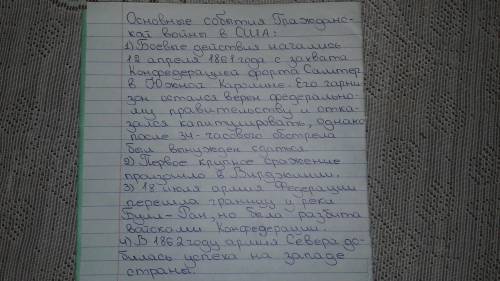 Основные события Гражданс-
кой войны в США:
1) Боевые действия начались
12 апреля 1861 года с захвата
Конфедерацией форта Самтер
в Южной Каролине. Его гарни-
зон остался верен федерально-
му правительству и отка-
зался капитулировать, однако
после 34-часового обстрела
был вынужден сдаться
2) Первое крупное сражение
произошло в Вирджинии.
3) 18 июля армия Федерации
перешла границу и река
Булл-Ран, но была разбита
войсками Конфедерации.
4) В 1862 году армия Севера до-
билась успеха на западе
страны.